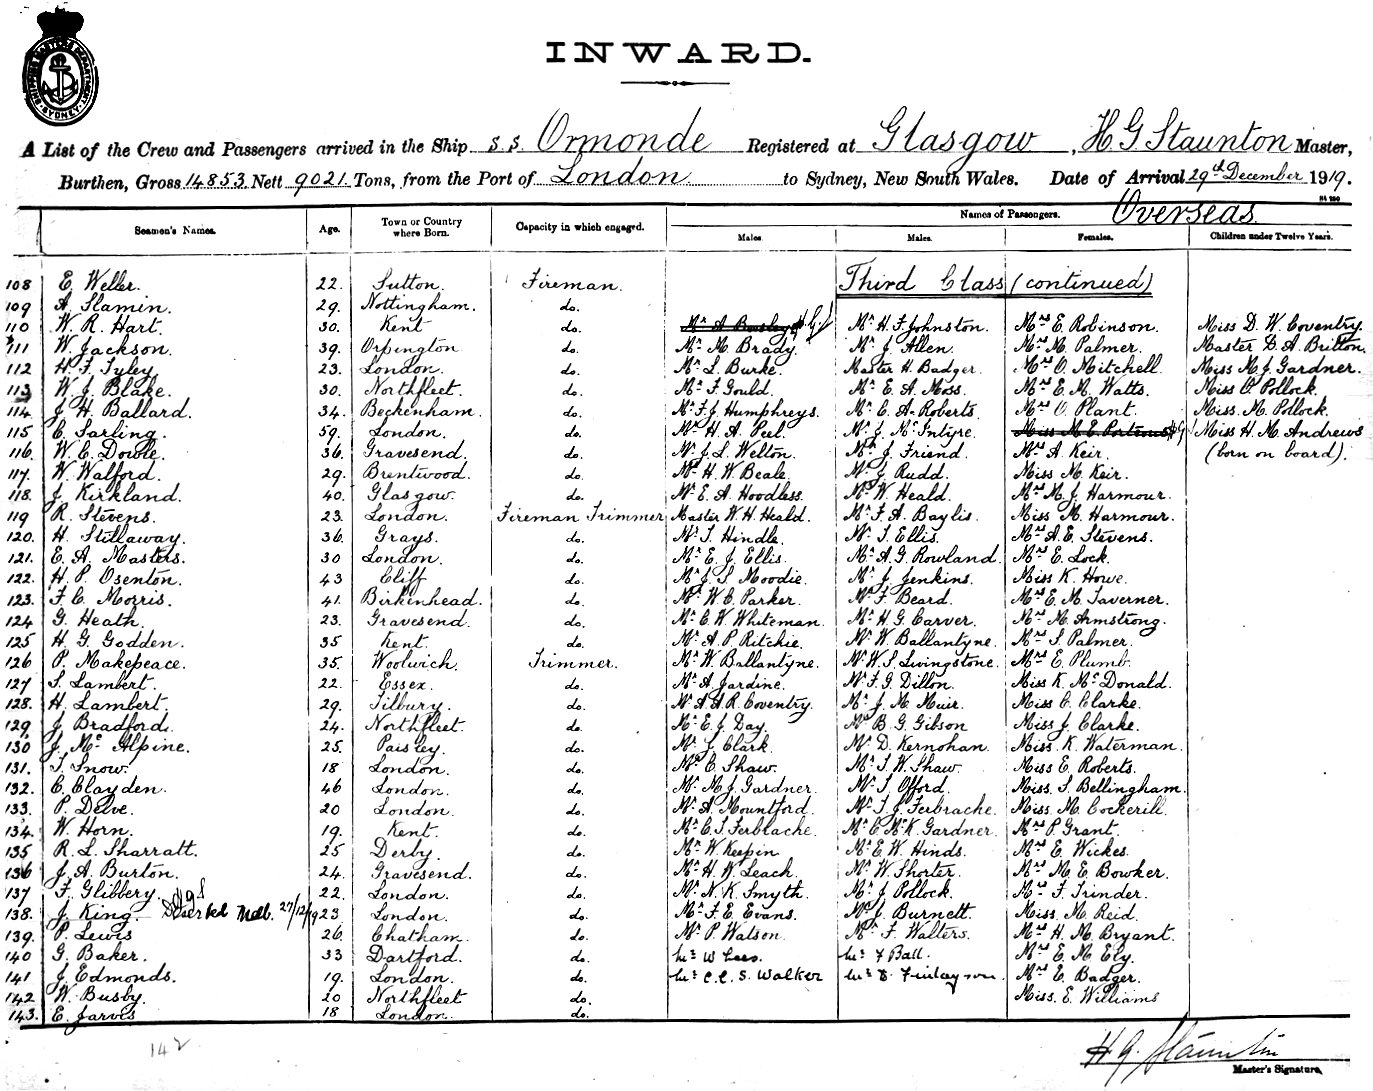 SHIPPING MASTER'S DEPARTMENT SYDNEY
INWARD.
A List of the Crew and Passengers arrived in the Ship S.S. Ormonde Registered at Glasgow, H. G. Staunton Master,
Burthen, Gross 14853 Nett 9021 Tons, from the Port of London to Sydney, New South Wales. Date of Arrival 29th December 1919.
Overseas
Seamen's Names. Age. Town or Country where Born. Capacity in which engaged. Names of Passengers.
Males. Males. Females. Children under Twelve Years.
108 E. Weller. 22. Sutton. Fireman. Third Class (continued)
109 A. Slamin. 29. Nottingham. do.
110 W. R. Hart. 30. Kent do. Mr A. Mr H. F. Johnston. Mrs E. Robinson. Miss D. W. Coventry.
111 W. Jackson. 39. Orpington do. Mr M. Brady. Mr J. Allen. Mrs M. Palmer. Master D. A. Britton.
112 H. F. Tyley. 23. London. do. Mr L. Burke. Master H. Badger. Mrs O. Mitchell. Miss M. J. Gardner.
113 W. J. Blake. 30. Northfleet. do. Mr F. Gould. Mr E. A. Moss. Mrs E. M. Watts. Miss C. Pollock.
114. J. H. Ballard. 34. Beckenham. do. Mr F. J. Humphreys. Mr C. A. Roberts. Mrs O. Plant. Miss. M. Pollock.
115 C. Sarling. 59. London. do. Mr H. A. Peel. Mr J. McIntyre. Miss M. E. Miss H. M. Andrews
116. W. E. Dowle. 36. Gravesend. do. Mr J. L. Welton. Mr J. Friend. Mrs A. Keir. (born on board).
117. W. Walford. 29. Brentwood. do. Mr H. W. Beale. Mr J. Rudd. Miss M. Keir.
118. J. Kirkland. 40. Glasgow. do. Mr E. A. Hoodless. Mr W. Heald. Mrs M. J. Harmour.
119 R. Stevens. 23. London. Fireman Trimmer Master W. H. Heald. Mr F. A. Baylis. Miss M. Harmour.
120. H. Stillaway. 36. Grays. do. Mr T. Hindle. Mr T. Ellis. Mrs A. E. Stevens.
121. E. A. Masters. 30 London. do. Mr E. J. Ellis. Mr A. G. Rowland. Mrs E. Lock.
122. H. P. Osenton. 43 Cliff do. Mr J. S. Moodie. Mr J. Jenkins. Miss K. Howe.
123. F. C. Morris. 41. Birkinhead. do. Mr W. C. Parker. Mr F. Beard. Mrs E. M. Taverner.
124 G. Heath. 23. Gravesend. do. Mr C. W. Whiteman. Mr H. G. Carver. Mrs M. Armstrong.
125 H. G. Godden. 35 Kent. do. Mr A. P. Ritchie. Mr W. Ballantyne. Mrs S. Palmer.
126 P. Makepeace. 35. Woolwich. Trimmer. Mr W. Ballantyne. Mr W. S. Livingstone. Mrs E. Plumb.
127 S. Lambert. 22. Essex. do. Mr A. Jardine. Mr F. G. Dillon. Miss K. McDonald.
128. H. Lambert. 29. Tilbury. do. Mr A. A. R. Coventry. Mr J. M. Muir. Miss C. Clarke.
129 J. Bradford. 24. Northfleet. do. Mr E. J. Day. Mr B. G. Gibson Miss J. Clarke.
130 J. McAlpine. 25. Paisley. do. Mr J. Clark. Mr D. Kernohan. Miss. K. Waterman.
131. T. Snow. 18 London. do. Mr C. Shaw. Mr T. W. Shaw. Miss E. Roberts.
132. C. Clayden. 46 London. do. Mr M. J. Gardner. Mr T. Offord. Miss. S. Bellingham.
133. P. Delve. 20 London. do. Mr A. Mountford. Mr T. J. Ferbrache. Miss. M. Cockerill.
134. W. Horn. 19. Kent. do. Mr C. T. Ferblache. Mr C. McK. Gardner. Mrs P. Grant.
135 R. L. Sharratt. 25 Derby. do. Mr W. Keepin Mr E. W. Hinds. Mrs E. Wickes.
136 J. A. Burton. 24. Gravesend. do. Mr H. W. Leach. Mr W. Shorter. Mrs M. E. Bowker.
137 F. Glibbery. 22. London. do. Mr N. K. Smyth. Mr J. Pollock. Mrs F. Trinder.
138. J. King. Deserted Melb. 27/12/19 23 London. do. Mr F. E. Evans. Mr J. Burnett. Miss. M. Reid.
139. P. Lewis 26. Chatham. do. Mr P. Watson. Mr F. Walters. Mrs H. M. Bryant.
140 G. Baker. 33 Dartford. do. Mr W Lees. Mr F Ball. Mrs E. M. Ely.
141 J. Edmonds. 19. London. do. Mr C. C. S. Walker Mr E. Finlayson. Mrs E. Badger.
142 W. Busby. 20 Northfleet do. Miss. E. Williams
143. E. Jarvis 18 London. do.
142
H. G. Staunton
Master's Signature.